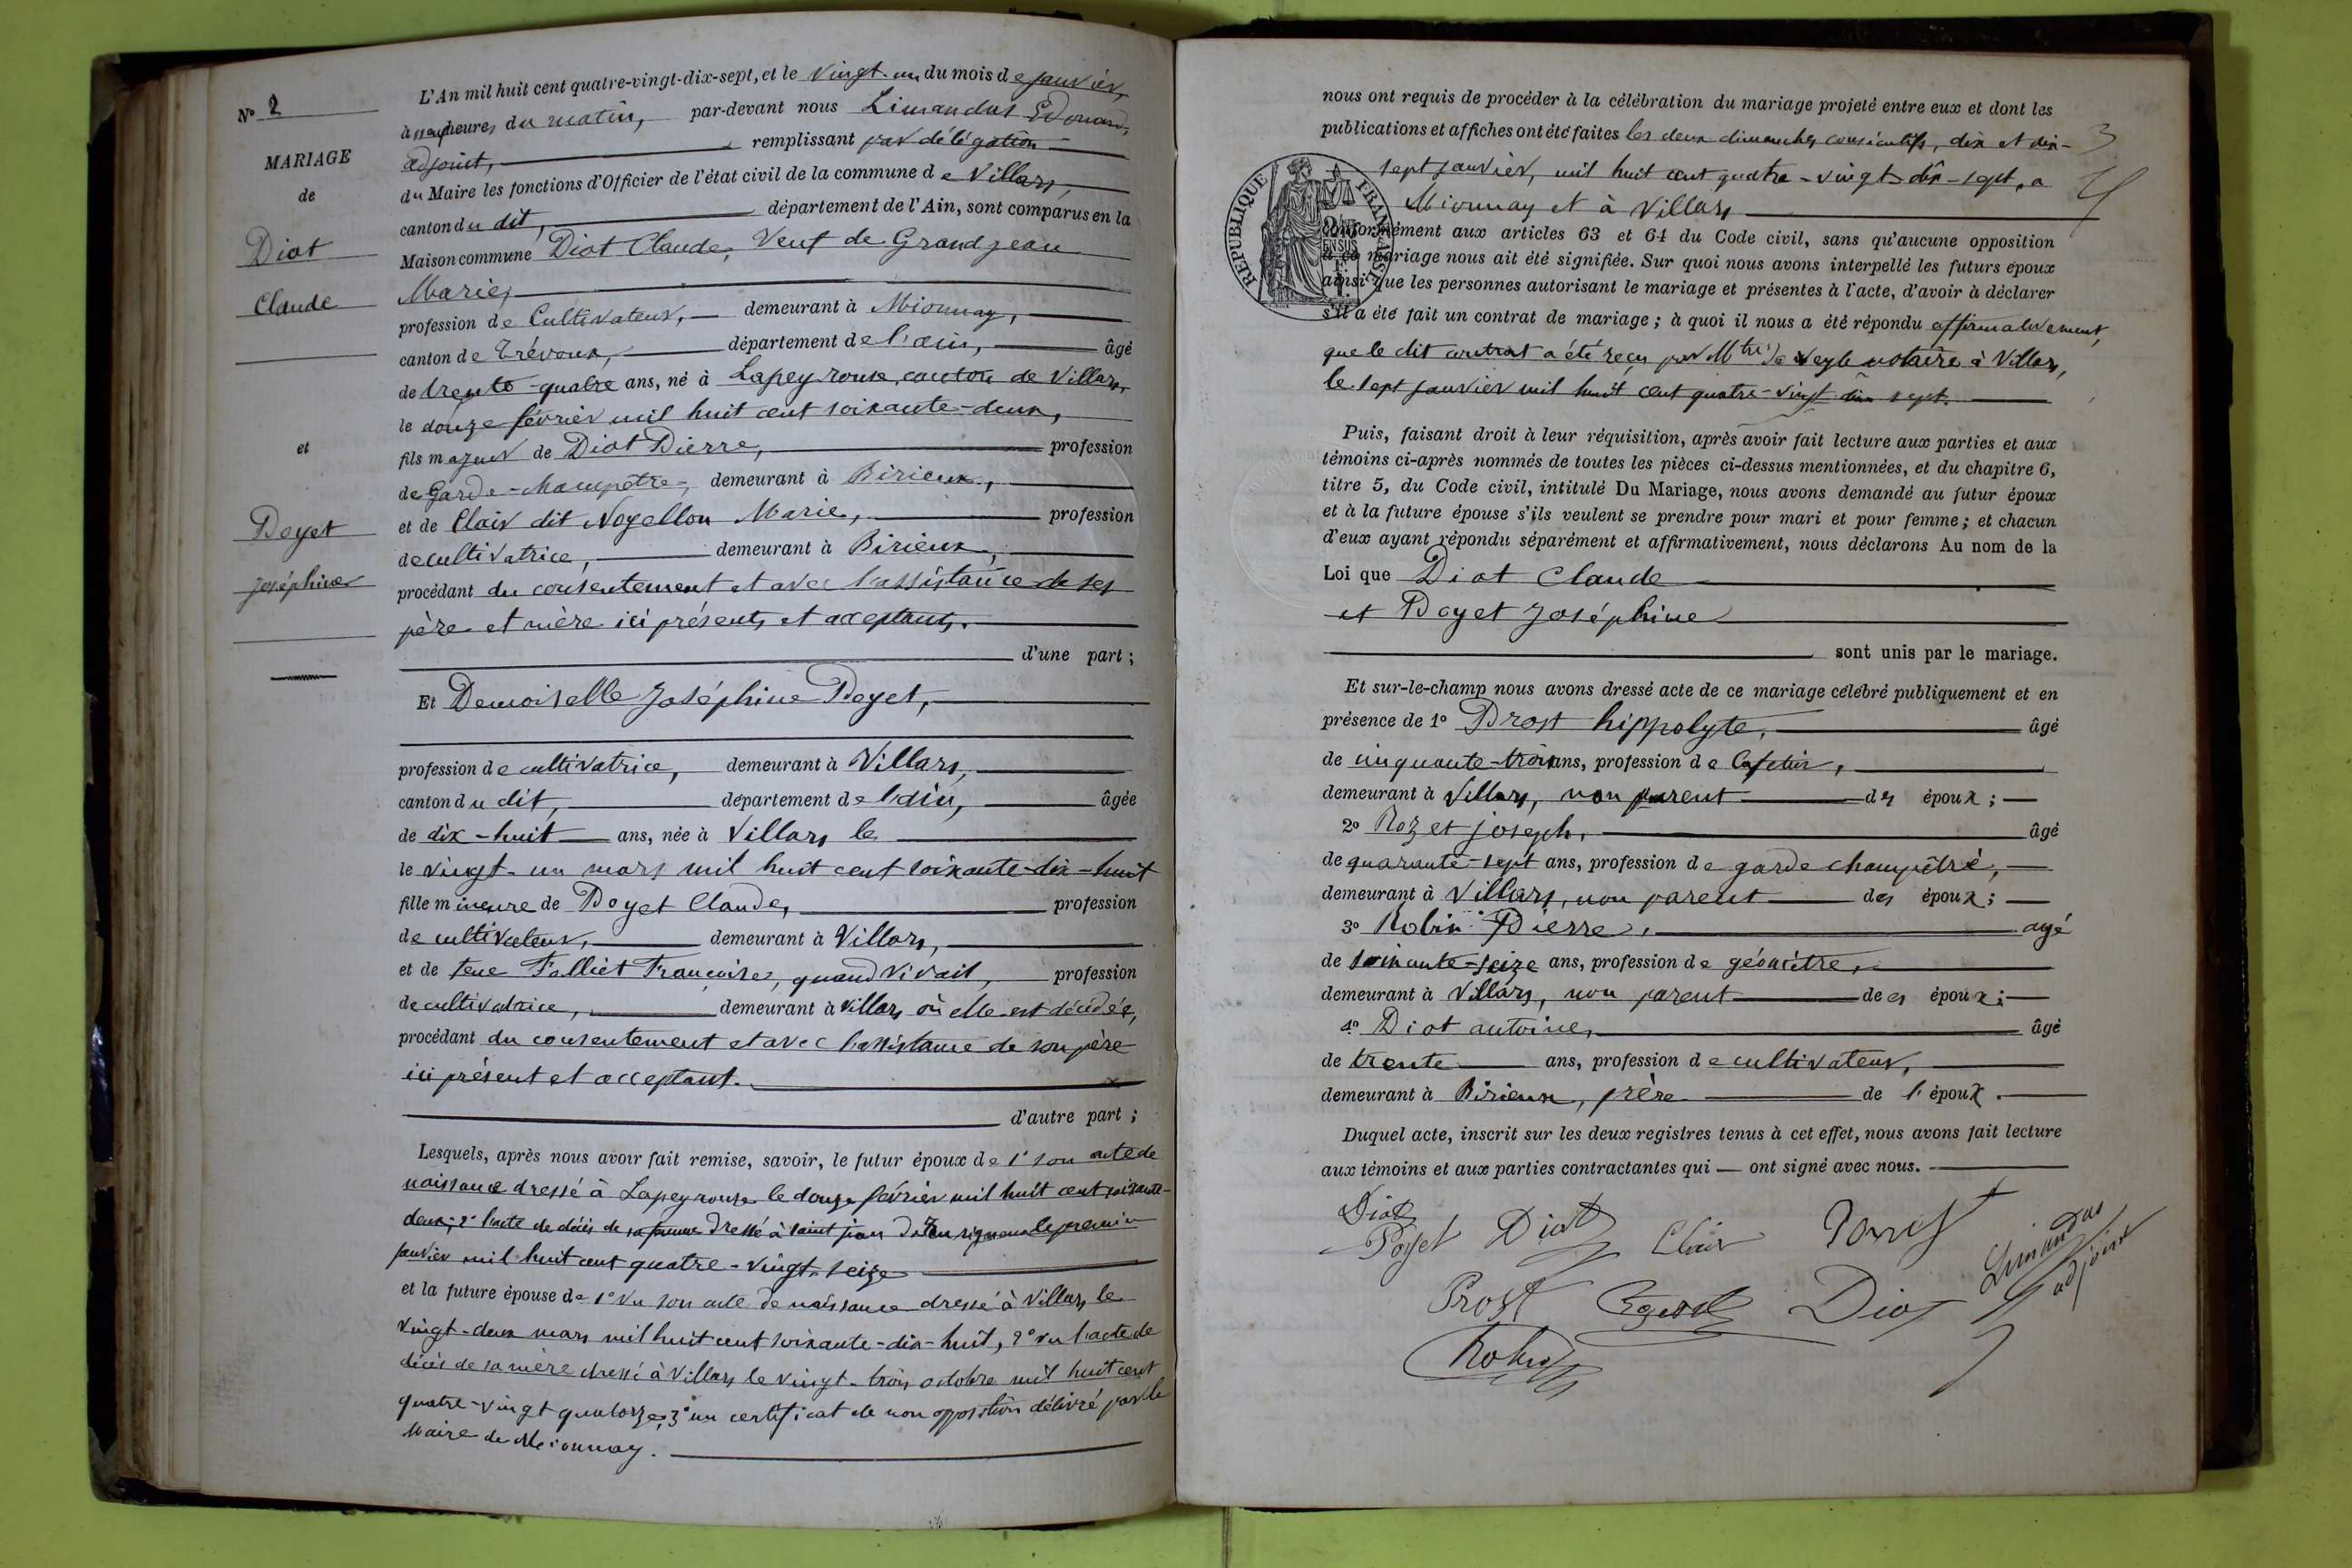 N° 2
MARIAGE
de
Diot
Claude
et
Poyet
Joséphine
L'An mil huit cent quatre-vingt-dix-sept, et le vingt-un du mois de janvier,
à neuf heures du matin, par-devant nous Limandas Edouard,
adjoint, remplissant par délégation
du Maire les fonctions d'Officier de l'état civil de la commune de Villars,
canton du dit, département de l'Ain, sont comparus en la
Maison commune Diot Claude, Veuf de Grandjean
Marie,
profession de Cultivateur, demeurant à Mionnay,
canton de Trévoux, département de l'ain, âgé
de trente-quatre ans, né à Lapeyrouse, canton de Villars,
le douze février mil huit cent soixante-deux,
fils majeur de Diot Pierre, profession
de Garde-champêtre, demeurant à Birieux,
et de Clair dit Noyellon Marie, profession
de cultivatrice, demeurant à Birieux,
procédant du consentement et avec l'assistance de ses
père et mère ici présents et acceptants.
d'une part;
Et Demoiselle Joséphine Poyet,
profession de cultivatrice, demeurant à Villars,
canton du dit, département de l'ain, âgée
de dix-huit ans, née à Villars le
le vingt-un mars mil huit cent soixante-dix-huit
fille mineure de Poyet Claude, profession
de cultivateur, demeurant à Villars,
et de feue Folliet Françoise, quand vivait, profession
de cultivatrice, demeurant à Villars où elle est décédée,
procédant du consentement et avec l'assistance de son père
ici présent et acceptant.
d'autre part;
Lesquels, après nous avoir fait remise, savoir, le futur époux de 1° son acte de
naissance dressé à Lapeyrouse le douze février mil huit cent soixante-
deux; 2° l'acte de décès de sa femme dressé à saint jean de le premier
janvier mil huit cent quatre-vingt-seize
et la future épouse de 1° vu son acte de naissance dressé à Villars le
vingt-deux mars mil huit cent soixante-dix-huit, 2° vu l'acte de
décès de sa mère dressé à Villars le vingt-trois octobre mil huit cent
quatre-vingt quatorze, 3° un certificat de non opposition délivré par le
Maire de Mionnay.
nous ont requis de procéder à la célébration du mariage projeté entre eux et dont les
publications et affiches ont été faites les deux dimanches consécutifs, dix et dix-
sept janvier, mil huit cent quatre-vingt-dix-sept, a
Mionnay et à Villars
conformément aux articles 63 et 64 du Code civil, sans qu'aucune opposition
à ce mariage nous ait été signifiée. Sur quoi nous avons interpellé les futurs époux
ainsi que les personnes autorisant le mariage et présentes à l'acte, d'avoir à déclarer
s'il a été fait un contrat de mariage; à quoi il nous a été répondu affirmativement,
que le dit contrat a été reçu par Mtre de Veyle notaire à Villars,
le sept janvier mil huit cent quatre-vingt dix sept.
RÉPUBLIQUE FRANÇAISE
Puis, faisant droit à leur réquisition, après avoir fait lecture aux parties et aux
témoins ci-après nommés de toutes les pièces ci-dessus mentionnées, et du chapitre 6,
titre 5, du Code civil, intitulé Du Mariage, nous avons demandé au futur époux
et à la future épouse s'ils veulent se prendre pour mari et pour femme; et chacun
d'eux ayant répondu séparément et affirmativement, nous déclarons Au nom de la
Loi que Diot Claude
et Poyet Joséphine
sont unis par le mariage.
Et sur-le-champ nous avons dressé acte de ce mariage célébré publiquement et en
présence de 1° Prost hippolyte, âgé
de cinquante-trois ans, profession de Cafetier,
demeurant à Villars, non parent des époux;
2° Rozet joseph, âgé
de quarante-sept ans, profession de garde champêtre,
demeurant à Villars, non parent des époux;
3° Robin Pierre, agé
de soixante-seize ans, profession de géomètre,
demeurant à Villars, non parent des époux;
4° Diot antoine, âgé
de trente ans, profession de cultivateur,
demeurant à Birieux, frère de l'époux.
Duquel acte, inscrit sur les deux registres tenus à cet effet, nous avons fait lecture
aux témoins et aux parties contractantes qui ont signé avec nous.
Diot
Poyet Diot Clair
Limandas
adjoint
Prost Diot
Robin